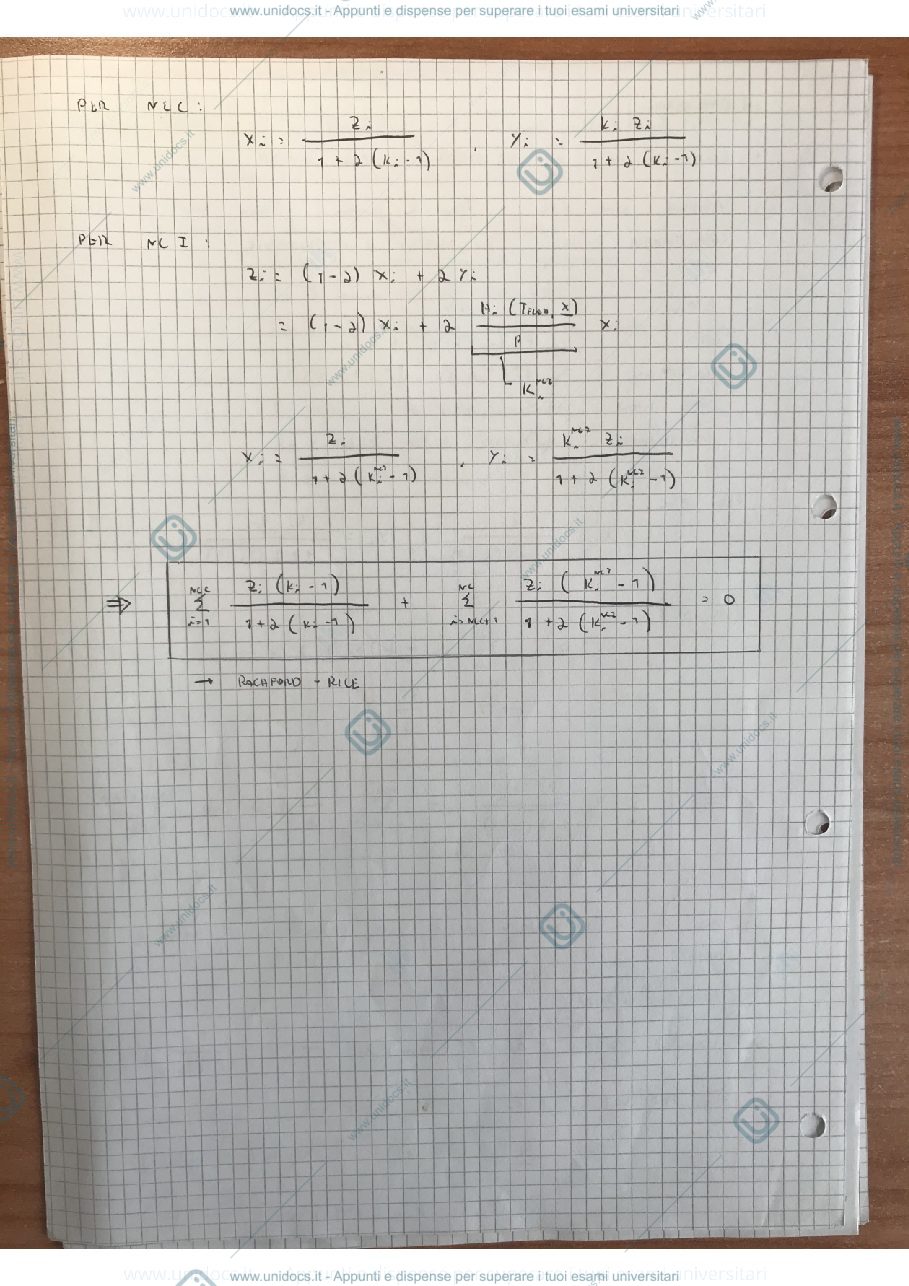 www.unidocs.it - Appunti e dispense per superare i tuoi esami universitari
PER NCC :
x_i = z_i / (1 + α (K_i - 1)) , y_i = K_i z_i / (1 + α (K_i - 1))
PER NCI :
z_i = (1 - α) x_i + α y_i
= (1 - α) x_i + α H_i (T_FLASH, x) / P x_i
K_i^NCI
x_i = z_i / (1 + α (K_i^NCI - 1)) , y_i = K_i^NCI z_i / (1 + α (K_i^NCI - 1))
⇒ Σ_{i=1}^{NCC} z_i (K_i - 1) / (1 + α (K_i - 1)) + Σ_{i=NCC+1}^{NC} z_i (K_i^NCI - 1) / (1 + α (K_i^NCI - 1)) = 0
→ RACHFORD - RICE
www.unidocs.it - Appunti e dispense per superare i tuoi esami universitari